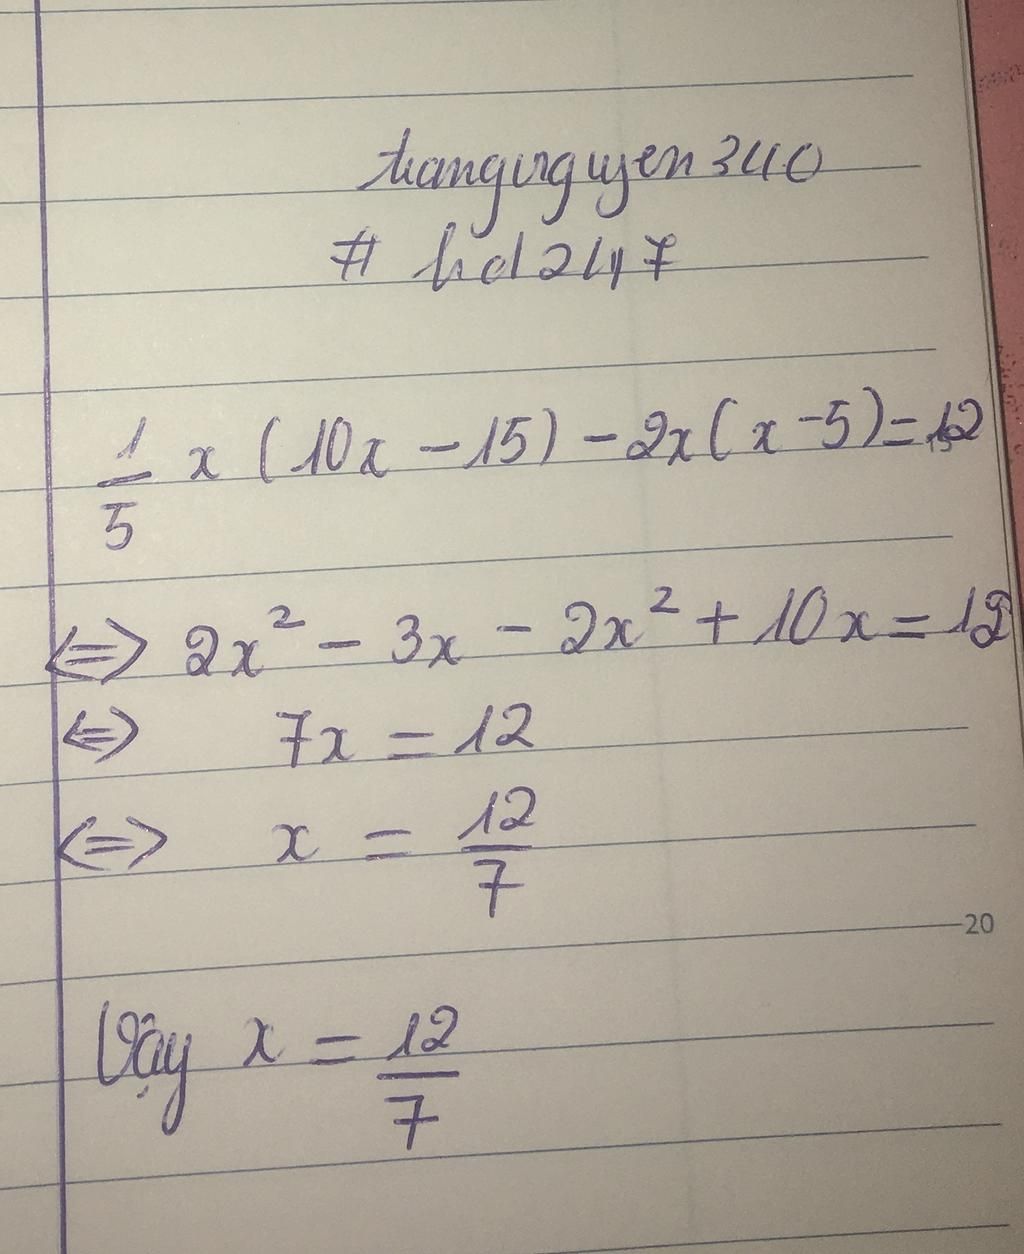 trangnguyen340
# hd247
1/5 x (10x - 15) - 2x(x - 5) = 12
<=> 2x² - 3x - 2x² + 10x = 12
<=> 7x = 12
<=> x = 12/7
20
Vậy x = 12/7